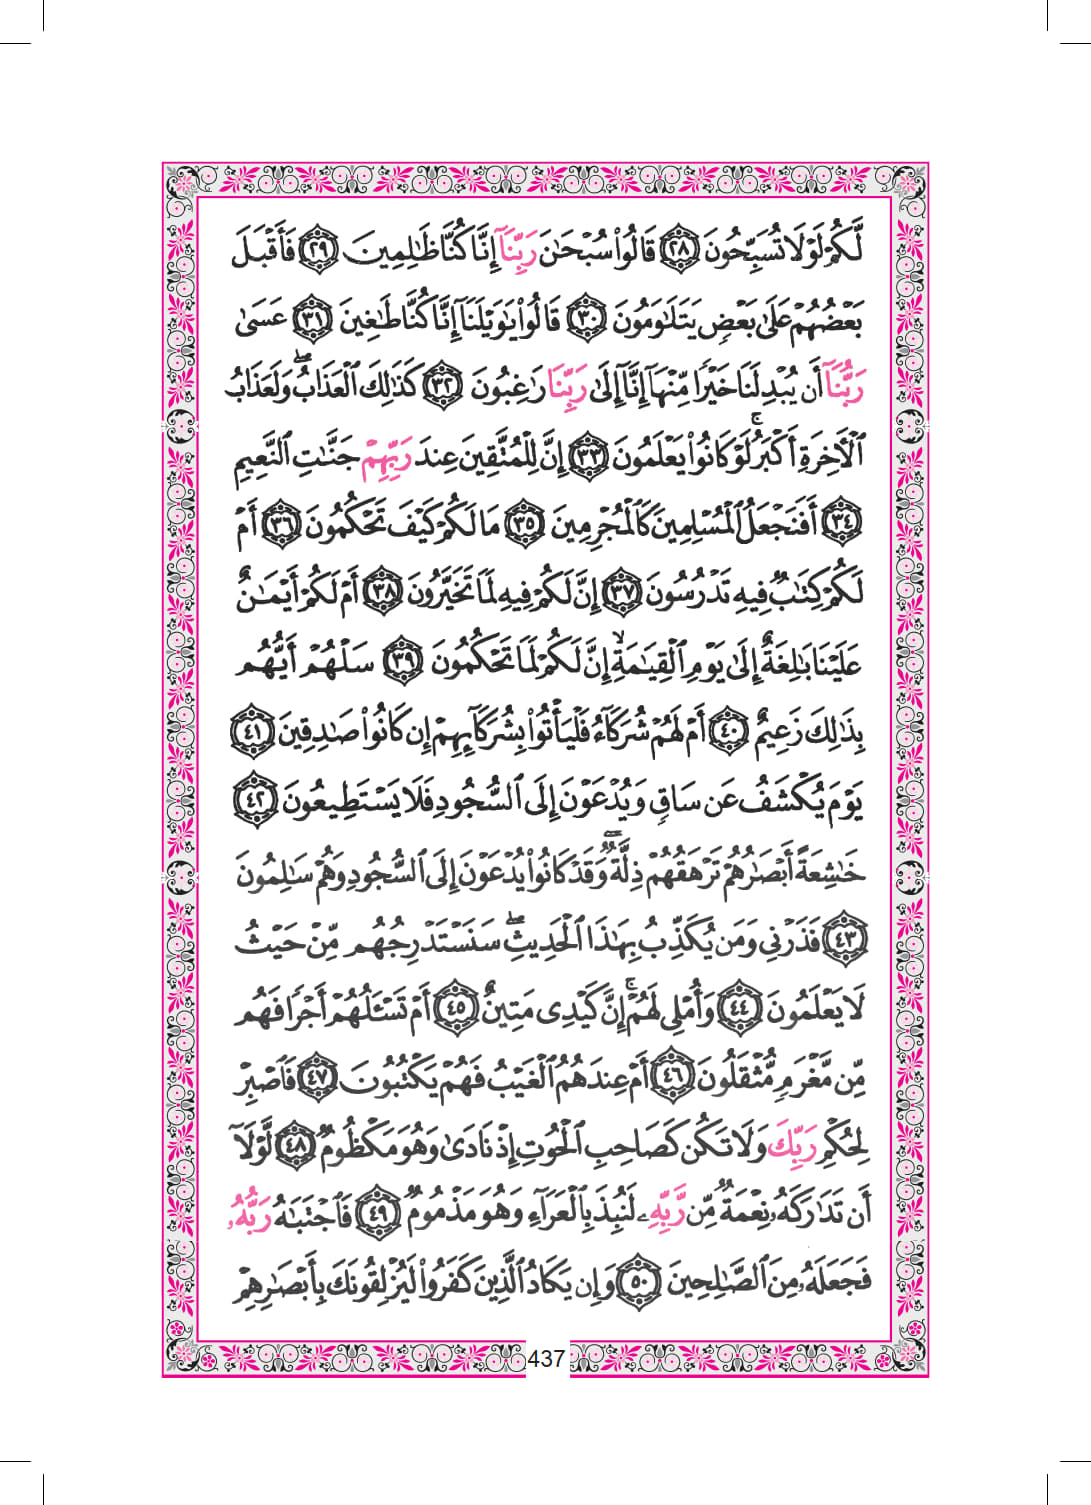 لَّكُمْ لَوْلَا تُسَبِّحُونَ ﴿٢٨﴾ قَالُوا۟ سُبْحَـٰنَ رَبِّنَآ إِنَّا كُنَّا ظَـٰلِمِينَ ﴿٢٩﴾ فَأَقْبَلَ
بَعْضُهُمْ عَلَىٰ بَعْضٍ يَتَلَـٰوَمُونَ ﴿٣٠﴾ قَالُوا۟ يَـٰوَيْلَنَآ إِنَّا كُنَّا طَـٰغِينَ ﴿٣١﴾ عَسَىٰ
رَبُّنَآ أَن يُبْدِلَنَا خَيْرًا مِّنْهَآ إِنَّآ إِلَىٰ رَبِّنَا رَٰغِبُونَ ﴿٣٢﴾ كَذَٰلِكَ ٱلْعَذَابُ ۖ وَلَعَذَابُ
ٱلْـَٔاخِرَةِ أَكْبَرُ ۚ لَوْ كَانُوا۟ يَعْلَمُونَ ﴿٣٣﴾ إِنَّ لِلْمُتَّقِينَ عِندَ رَبِّهِمْ جَنَّـٰتِ ٱلنَّعِيمِ
﴿٣٤﴾ أَفَنَجْعَلُ ٱلْمُسْلِمِينَ كَٱلْمُجْرِمِينَ ﴿٣٥﴾ مَا لَكُمْ كَيْفَ تَحْكُمُونَ ﴿٣٦﴾ أَمْ
لَكُمْ كِتَـٰبٌ فِيهِ تَدْرُسُونَ ﴿٣٧﴾ إِنَّ لَكُمْ فِيهِ لَمَا تَخَيَّرُونَ ﴿٣٨﴾ أَمْ لَكُمْ أَيْمَـٰنٌ
عَلَيْنَا بَـٰلِغَةٌ إِلَىٰ يَوْمِ ٱلْقِيَـٰمَةِ ۙ إِنَّ لَكُمْ لَمَا تَحْكُمُونَ ﴿٣٩﴾ سَلْهُمْ أَيُّهُم
بِذَٰلِكَ زَعِيمٌ ﴿٤٠﴾ أَمْ لَهُمْ شُرَكَآءُ فَلْيَأْتُوا۟ بِشُرَكَآئِهِمْ إِن كَانُوا۟ صَـٰدِقِينَ ﴿٤١﴾
يَوْمَ يُكْشَفُ عَن سَاقٍ وَيُدْعَوْنَ إِلَى ٱلسُّجُودِ فَلَا يَسْتَطِيعُونَ ﴿٤٢﴾
خَـٰشِعَةً أَبْصَـٰرُهُمْ تَرْهَقُهُمْ ذِلَّةٌ ۖ وَقَدْ كَانُوا۟ يُدْعَوْنَ إِلَى ٱلسُّجُودِ وَهُمْ سَـٰلِمُونَ
﴿٤٣﴾ فَذَرْنِى وَمَن يُكَذِّبُ بِهَـٰذَا ٱلْحَدِيثِ ۖ سَنَسْتَدْرِجُهُم مِّنْ حَيْثُ
لَا يَعْلَمُونَ ﴿٤٤﴾ وَأُمْلِى لَهُمْ ۚ إِنَّ كَيْدِى مَتِينٌ ﴿٤٥﴾ أَمْ تَسْـَٔلُهُمْ أَجْرًا فَهُم
مِّن مَّغْرَمٍ مُّثْقَلُونَ ﴿٤٦﴾ أَمْ عِندَهُمُ ٱلْغَيْبُ فَهُمْ يَكْتُبُونَ ﴿٤٧﴾ فَٱصْبِرْ
لِحُكْمِ رَبِّكَ وَلَا تَكُن كَصَاحِبِ ٱلْحُوتِ إِذْ نَادَىٰ وَهُوَ مَكْظُومٌ ﴿٤٨﴾ لَّوْلَآ
أَن تَدَٰرَكَهُۥ نِعْمَةٌ مِّن رَّبِّهِۦ لَنُبِذَ بِٱلْعَرَآءِ وَهُوَ مَذْمُومٌ ﴿٤٩﴾ فَٱجْتَبَـٰهُ رَبُّهُۥ
فَجَعَلَهُۥ مِنَ ٱلصَّـٰلِحِينَ ﴿٥٠﴾ وَإِن يَكَادُ ٱلَّذِينَ كَفَرُوا۟ لَيُزْلِقُونَكَ بِأَبْصَـٰرِهِمْ
437